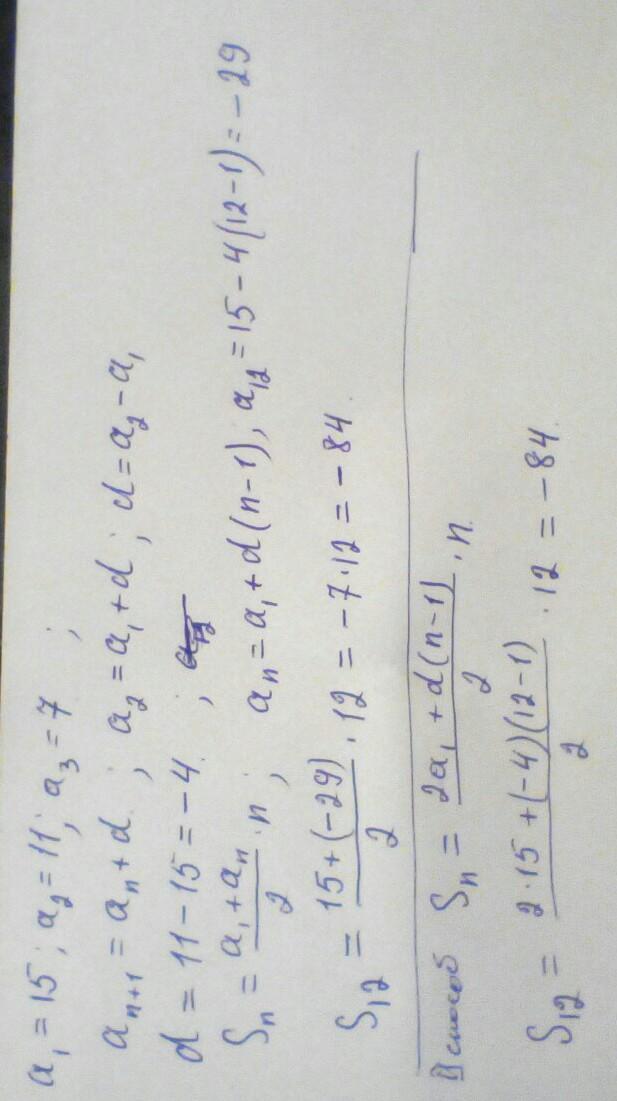 a₁ = 15; a₂ = 11; a₃ = 7 ;
aₙ₊₁ = aₙ + d ; a₂ = a₁ + d ; d = a₂ - a₁
d = 11 - 15 = -4 ;
Sₙ = (a₁ + aₙ)/2 · n ; aₙ = a₁ + d(n-1); a₁₂ = 15 - 4(12-1) = -29
S₁₂ = (15 + (-29))/2 · 12 = -7·12 = -84.
II способ Sₙ = (2a₁ + d(n-1))/2 · n.
S₁₂ = (2·15 + (-4)(12-1))/2 · 12 = -84.